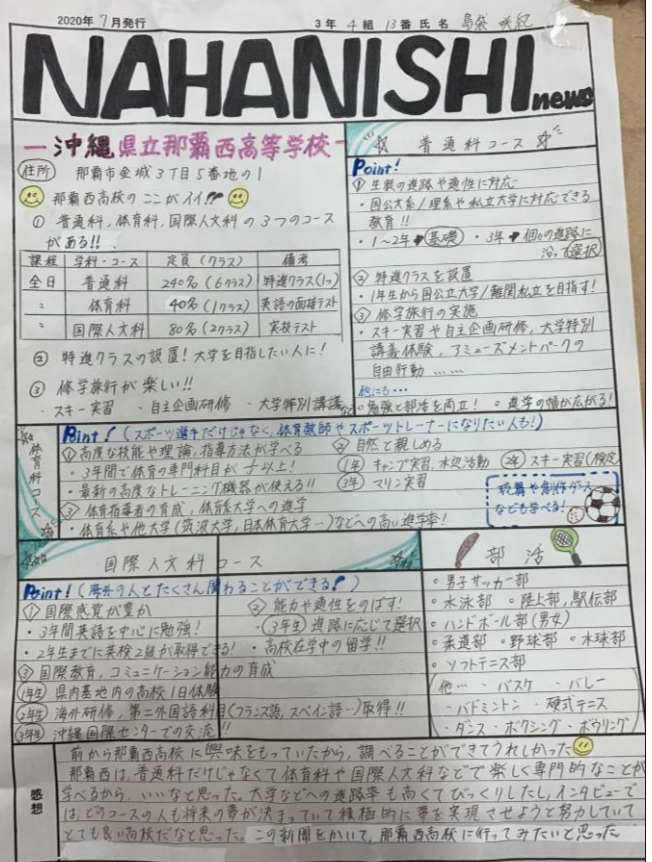 2020年 7月発行
3年 4組 13番 氏名 島袋 咲紀
NAHANISHI news
ー沖縄県立那覇西高等学校ー
住所 那覇市金城3丁目5番地の1
那覇西高校のここがイイ!!
① 普通科,体育科,国際人文科の3つのコース
がある!!
課程 学科・コース 定員(クラス) 備考
全日 普通科 240名(6クラス) 特進クラス(1つ)
〃 体育科 40名(1クラス) 英語の面接テスト
〃 国際人文科 80名(2クラス) 実技テスト
② 特進クラスの設置!大学を目指したい人に!
③ 修学旅行が楽しい!!
・スキー実習 ・自主企画研修 ・大学特別講議 など
☆ 普通科コース ☆
Point!
① 生徒の進路や適性に対応
・国公大系/理系や私立大学に対応できる
教育!!
・1~2年➡基礎 ・3年➡個々の進路に
沿って選択
② 特進クラスを設置
・1年生から国公立大学/難関私立を目指す!
③ 修学旅行の実施
・スキー実習や自主企画研修,大学特別
講義体験,アミューズメントパークの
自由行動……
他にも…
。勉強と部活を両立! 。進学の幅が広がる!
体育科コース
Point!(スポーツ選手だけじゃなく,体育教師やスポーツトレーナーになりたい人も!)
① 高度な技能や理論,指導方法が学べる
・3年間で体育の専門科目が 以上!
・最新の高度なトレーニング機器が使える!!
③ 体育指導者の育成,体育系大学への進学
・体育系や他大学(筑波大学,日本体育大学…)などへの高い進学率!
② 自然と親しめる
1年 キャンプ実習,水辺活動 2年 スキー実習(検定
3年 マリン実習
武舞や創作ダンス
なども学べる!
国際人文科コース
Point!(海外の人とたくさん関わることができる!)
① 国際感覚が豊か
・3年間英語を中心に勉強!
・2年生までに英検2級が取得できる!
② 能力や適性をのばす!
・(3年生)進路に応じて選択
・高校在学中の留学!!
③ 国際教育,コミュニケーション能力の育成
1年生 県内基地内の高校1日体験
2年生 海外研修,第二外国語科目(フランス語,スペイン語…)取得!!
3年生 沖縄国際センターでの交流!!
部活
。男子サッカー部
。水泳部 。陸上部,駅伝部
。ハンドボール部(男女)
。柔道部 。野球部 。水球部
。ソフトテニス部
(他… ・バスケ ・バレー
・バドミントン ・硬式テニス
・ダンス・ボクシング・ボウリング)
感想
前から那覇西高校に興味をもっていたから,調べることができてうれしかった
那覇西は,普通科だけじゃなくて体育科や国際人文科などで楽しく専門的なことが
学べるから,いいなと思った。大学などへの進路率も高くてびっくりしたし,インタビューで
は,どのコースの人も将来の夢が決まっていて積極的に夢を実現させようと努力していて
とても良い高校だなと思った。この新聞をかいて,那覇西高校に行ってみたいと思った。